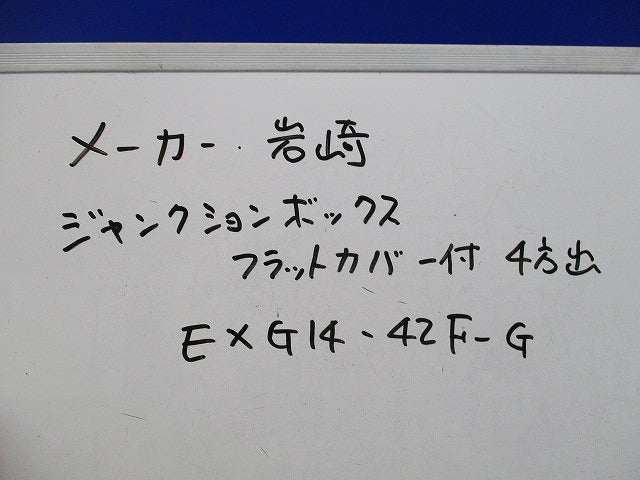 メーカー・岩崎
ジャンクションボックス
フラットカバー付 4方出
EXG14-42F-G